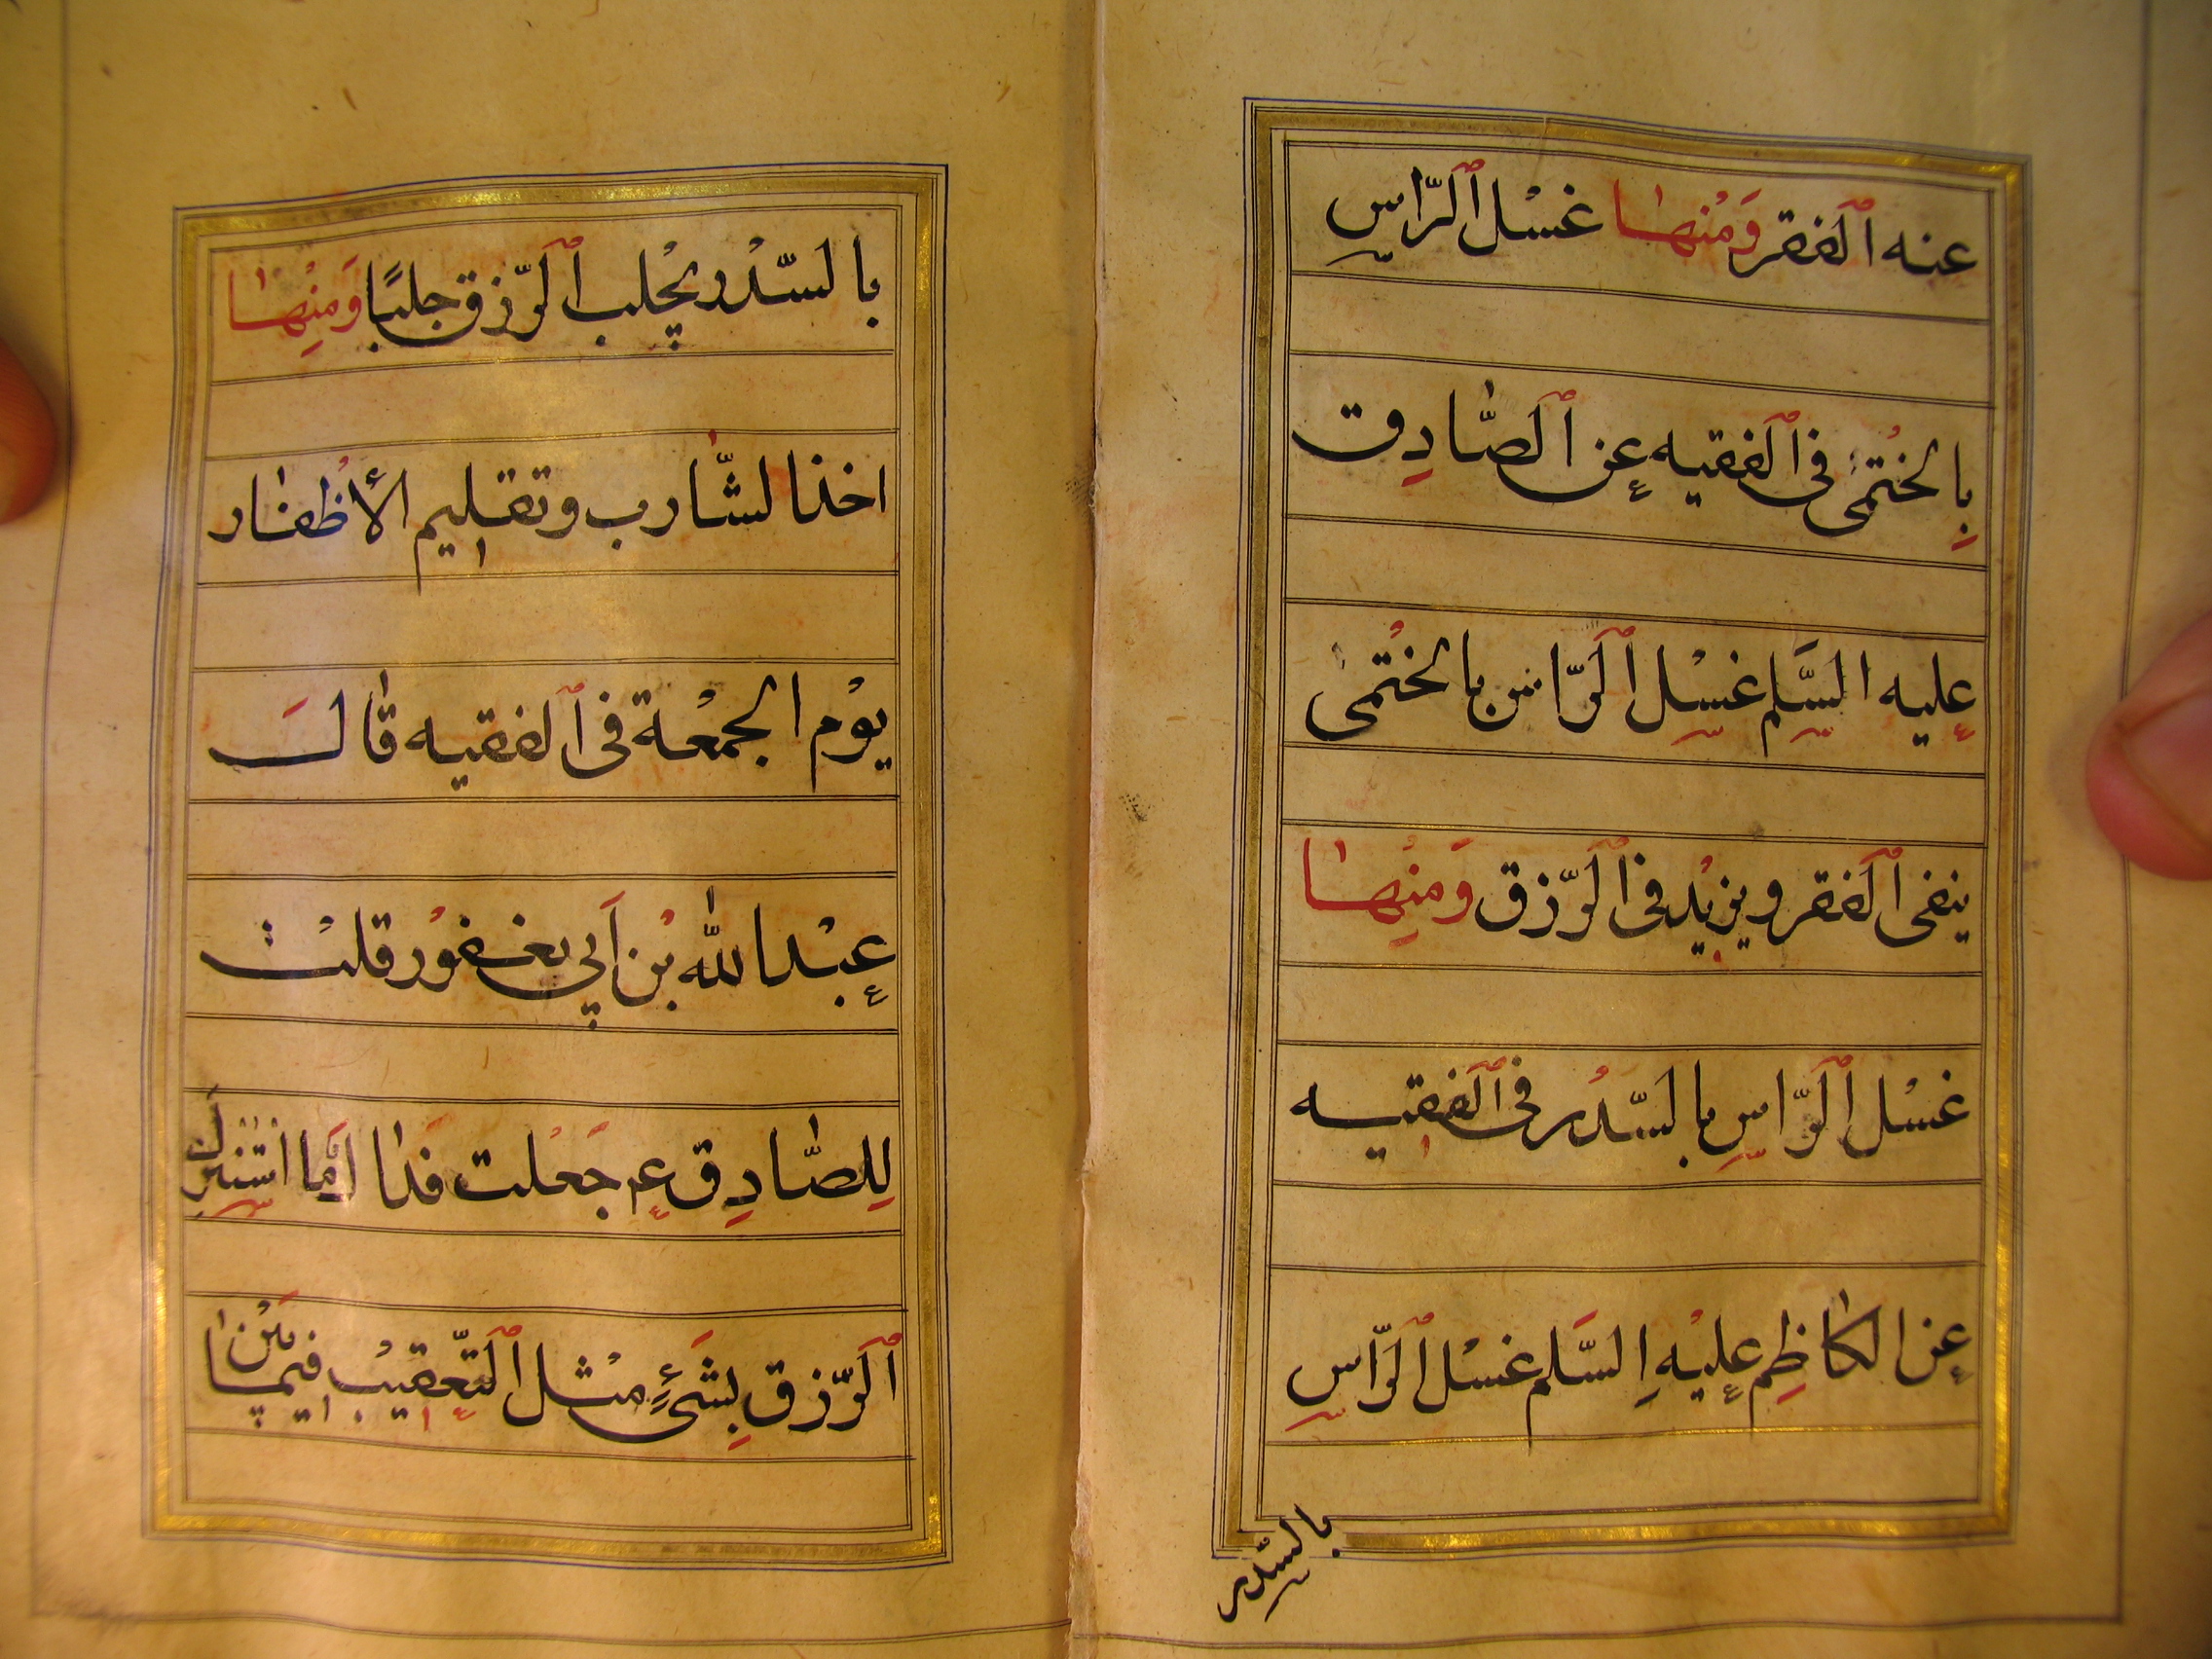 عنه الفقر وَمنها غسْل الرّاسِ
بِالختُمىٰ فى الفقيه عن الصّادِق
عليه السَّلم غسْل الرّاس بالختُمىٰ
ينفى الفقر ويزيْد فى الرّزق وَمنِها
غسْل الرّاسِ بالسّدْر فى الفقيه
عن الكاظِم عليْهِ السَّلم غسْل الرّاسِ
بالسّدر
بالسّدْر يجْلب الرّزق جلبًا وَمنِْها
اخذ الشّارب وتقليم الأظْفار
يوْم الجمْعة فى الفقيه قال
عبْد الله بْن اَبي يغفوْر قلتْ
لِلصّادِق ع جَعلت فداك اَمّا استنزل
الرّزق بِشَىْءٍ مثْل التّعقيب فيما بيْن